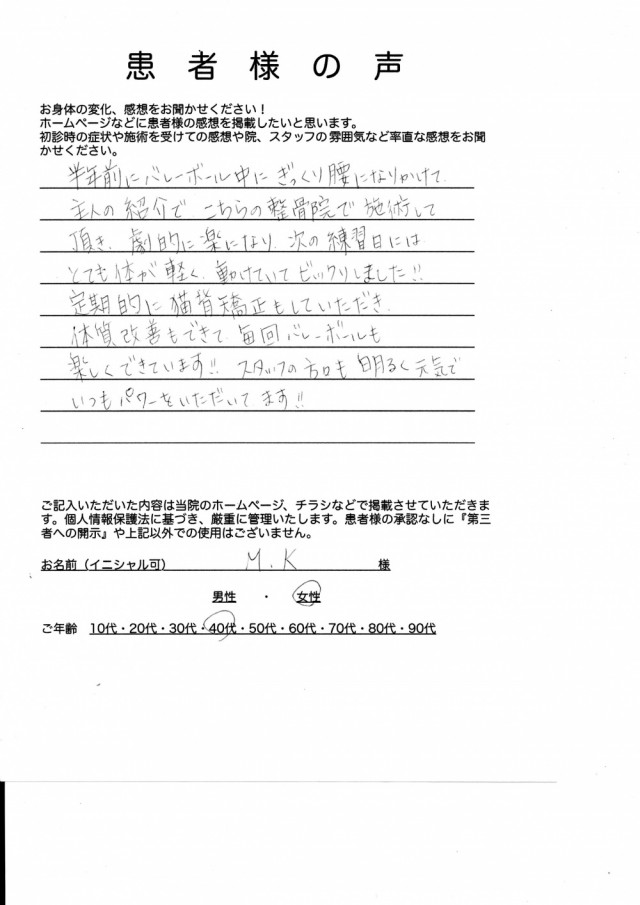 患者様の声
お身体の変化、感想をお聞かせください！
ホームページなどに患者様の感想を掲載したいと思います。
初診時の症状や施術を受けての感想や院、スタッフの雰囲気など率直な感想をお聞
かせください。
半年前にバレーボール中にぎっくり腰になりかけて、
主人の紹介で こちらの整骨院で 施術して
頂き、劇的に楽になり、次の練習日には
とても体が軽く、動けていてビックリしました!!
定期的に猫背矯正もしていただき、
体質改善もできて、毎回バレーボールも
楽しくできています!! スタッフの方々も明るく元気で
いつもパワーをいただいてます!!
ご記入いただいた内容は当院のホームページ、チラシなどで掲載させていただきま
す。個人情報保護法に基づき、厳重に管理いたします。患者様の承認なしに『第三
者への開示』や上記以外での使用はございません。
お名前（イニシャル可） M.K 様
男性 ・ 女性
ご年齢 10代・20代・30代・40代・50代・60代・70代・80代・90代